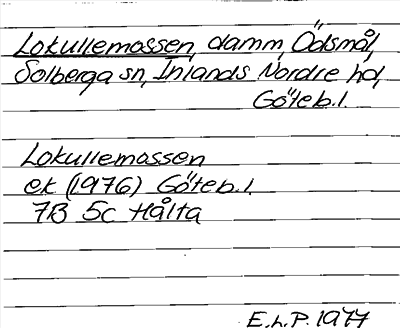 Lokullemossen, damm, Ödsmål,
Solberga sn, Inlands Nordre hd,
Göteb.l.
Lokullemossen
ek (1976) Göteb.l.
7B 5c Hålta
E.h.P. 1977